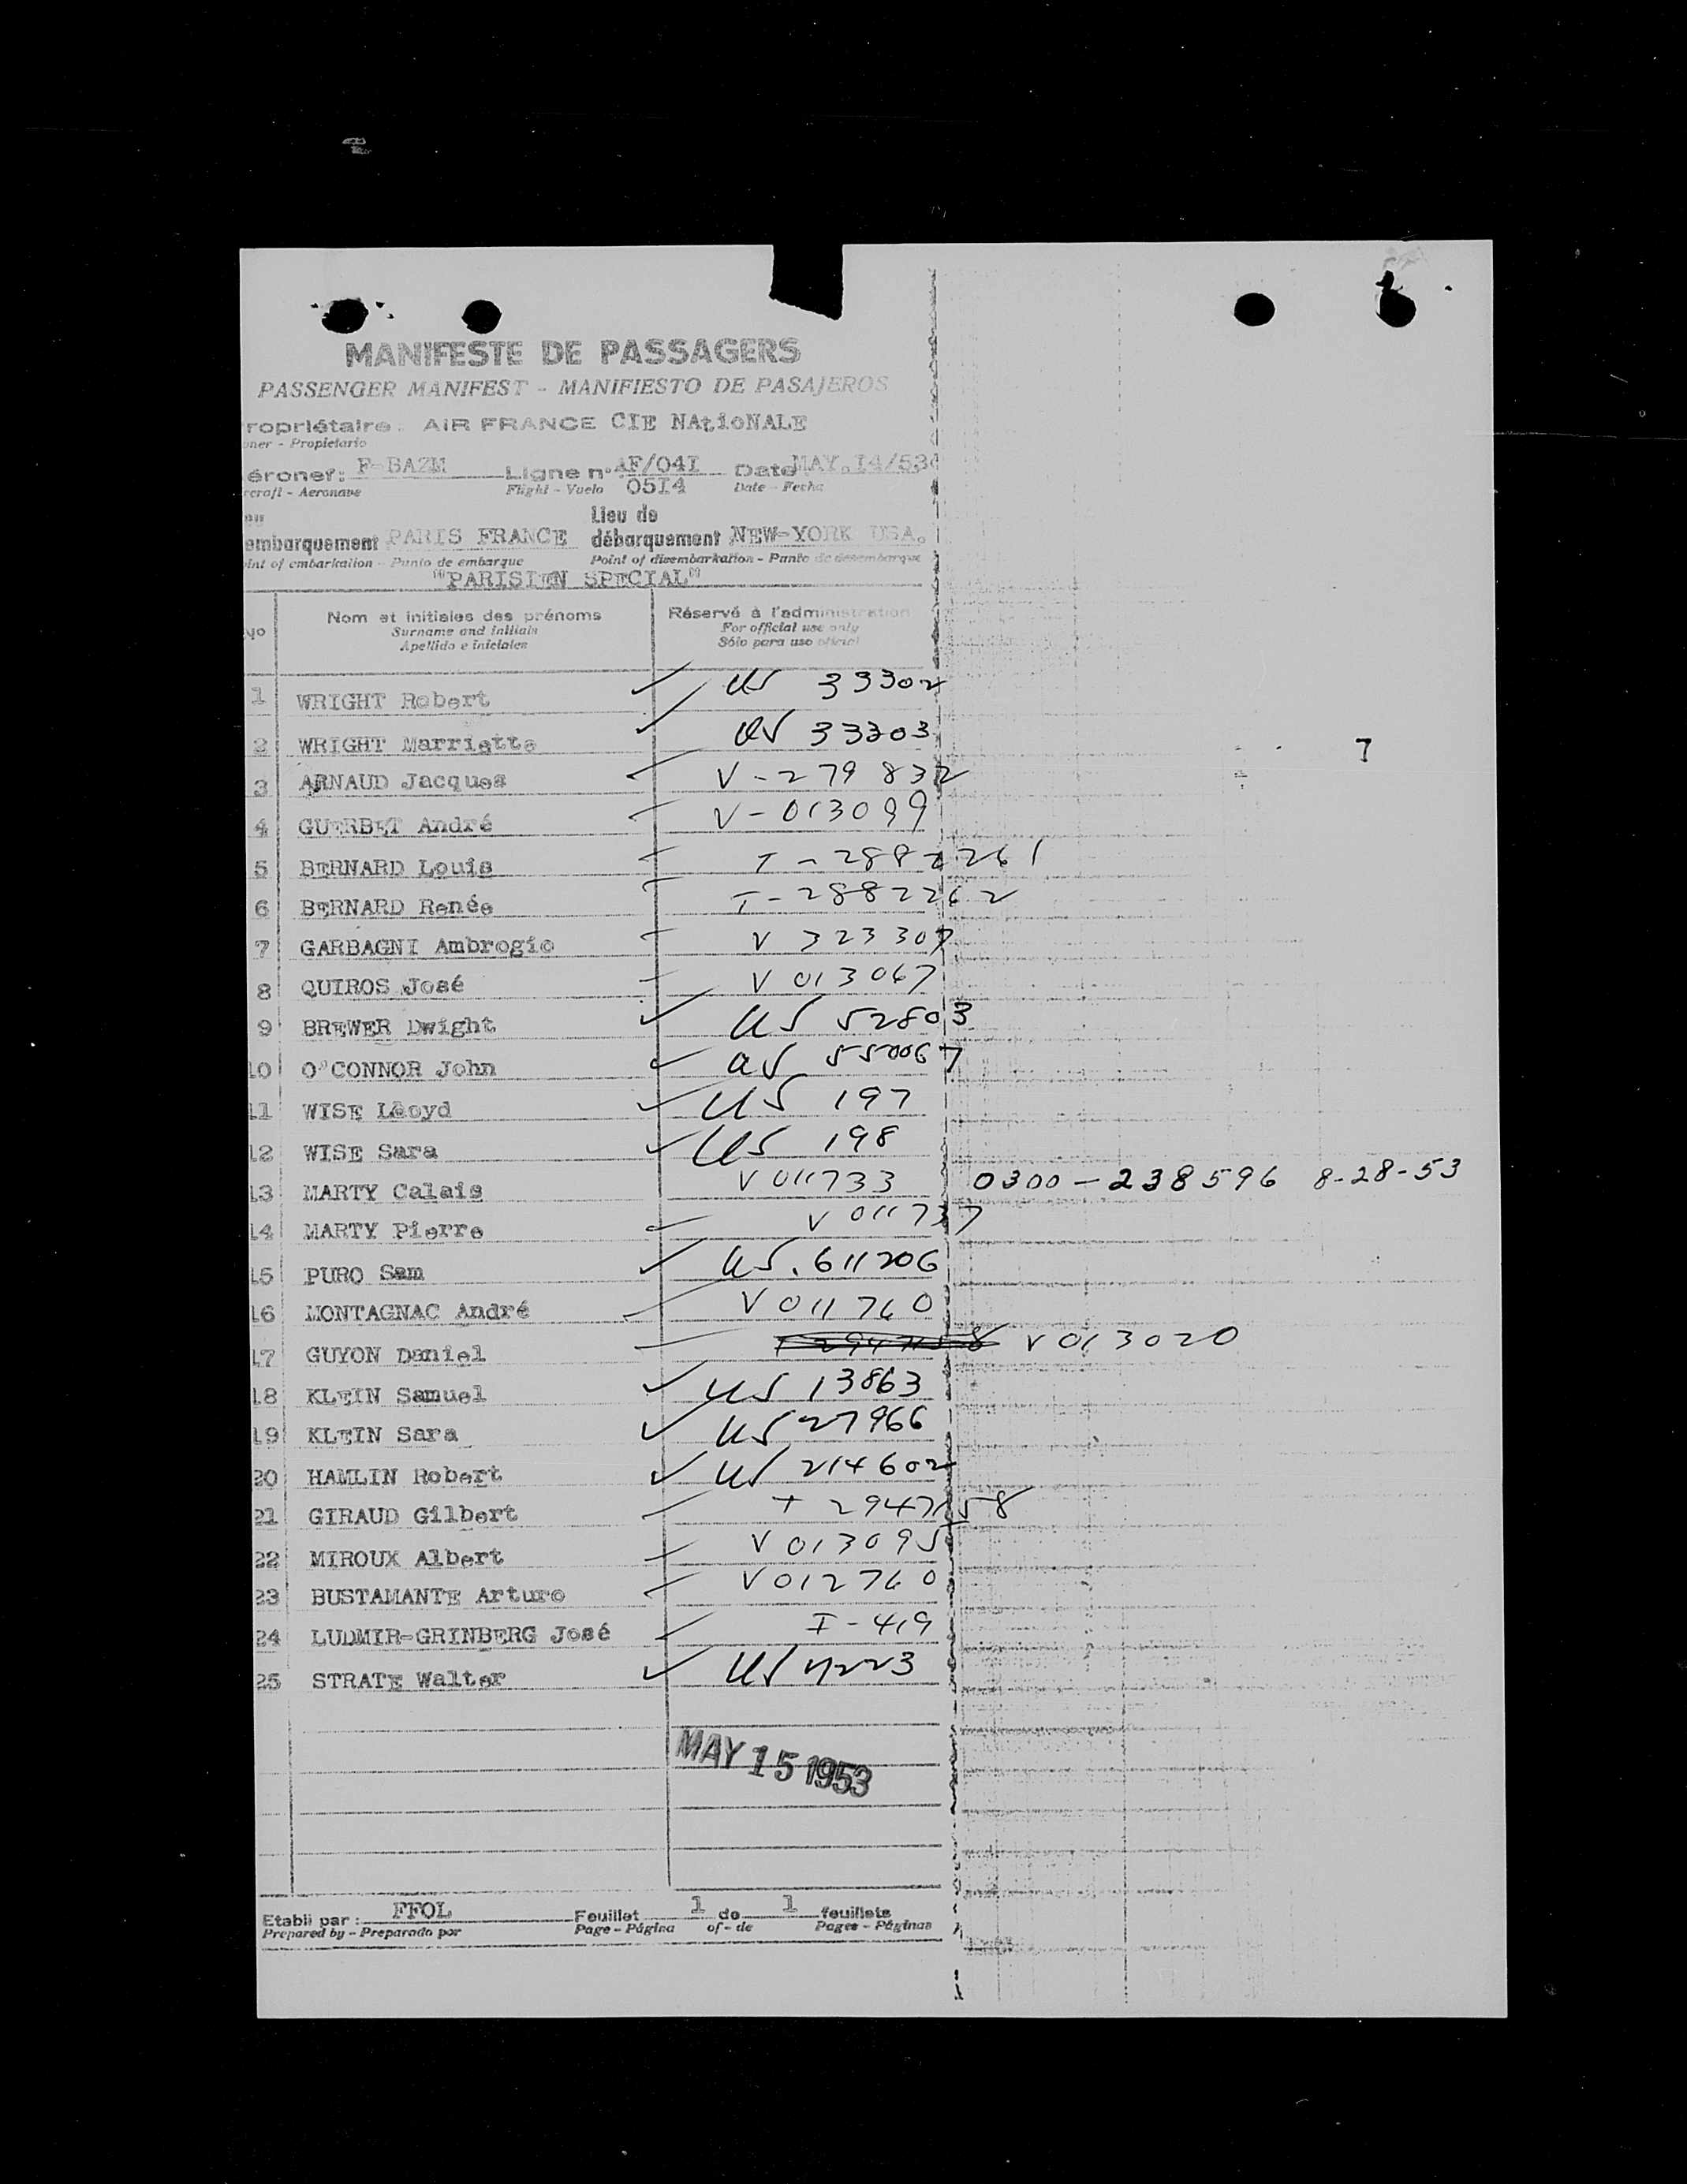 MANIFESTE DE PASSAGERS
PASSENGER MANIFEST - MANIFIESTO DE PASAJEROS
ropriétaire: AIR FRANCE CIE NAtioNALE
ner - Propietario
éronef: F-BAZM Ligne n° AF/04I Date MAY.I4/53
rcraft - Aeronave Flight - Vuelo 05I4 Date - Fecha
Lieu de
embarquement PARIS FRANCE débarquement NEW-YORK USA.
int of embarkation - Punto de embarque Point of disembarkation - Punto de desembarque
"PARISIEN SPECIAL"
Nom et initiales des prénoms Réservé à l'administration
Surname and initials For official use only
Apellido e iniciales Sólo para uso oficial
1 WRIGHT Robert US 33302
2 WRIGHT Marriette US 33303
7
3 ARNAUD Jacques V-279832
4 GUERBET André V-013099
5 BERNARD Louis T-2882261
6 BERNARD Renée T-2882262
7 GARBAGNI Ambrogio V 323307
8 QUIROS José V 013067
9 BREWER Dwight US 52803
10 O'CONNOR John US 550067
11 WISE Lloyd US 197
12 WISE Sara US 198
13 MARTY Calais V 011733 0300-238596 8-28-53
14 MARTY Pierre V 011737
15 PURO Sam US. 611206
16 MONTAGNAC André V 011760
17 GUYON Daniel V 013020
18 KLEIN Samuel US 13863
19 KLEIN Sara US 27966
20 HAMLIN Robert US 214602
21 GIRAUD Gilbert T 2947158
22 MIROUX Albert V 013095
23 BUSTAMANTE Arturo V 012760
24 LUDMIR-GRINBERG José I-419
25 STRATE Walter US
MAY 15 1953
Etabli par: FFOL Feuillet 1 de 1 feuillets
Prepared by - Preparado por Page - Página of - de Pages - Páginas